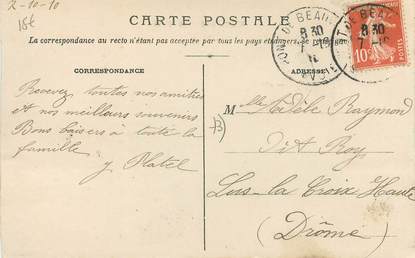 2-10-10
15€
CARTE POSTALE
La correspondance au recto n'étant pas acceptée par tous les pays étrangers, se
CORRESPONDANCE
ADRESSE
PONT DE BEAU
8 30
7 - 10
10
T DE BEAU
8 30
7 - 10
10
Recevez toutes nos amitiés
et nos meilleurs souvenirs
Bons baisers à toute la
famille
y Platel
B
Melle Adèle Raymond
dit Roy
Lus-la Croix Haute
(Drôme)